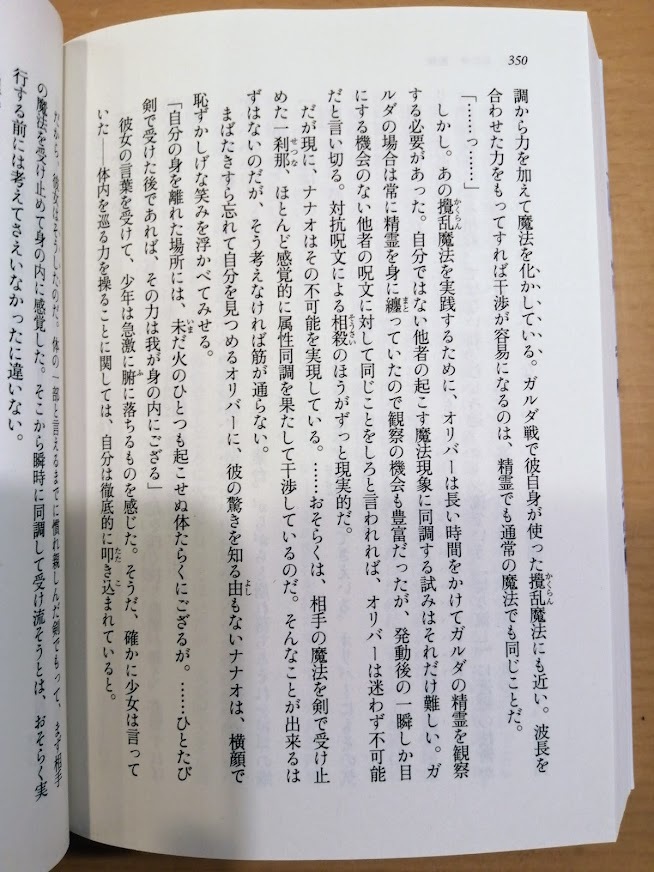 350
調から力を加えて魔法を化かしている。ガルダ戦で彼自身が使った攪乱魔法にも近い。波長を
合わせた力をもってすれば干渉が容易になるのは、精霊でも通常の魔法でも同じことだ。
「……っ……」
しかし。あの攪乱魔法を実践するために、オリバーは長い時間をかけてガルダの精霊を観察
する必要があった。自分ではない他者の起こす魔法現象に同調する試みはそれだけ難しい。ガ
ルダの場合は常に精霊を身に纏っていたので観察の機会も豊富だったが、発動後の一瞬しか目
にする機会のない他者の呪文に対して同じことをしろと言われれば、オリバーは迷わず不可能
だと言い切る。対抗呪文による相殺のほうがずっと現実的だ。
だが現に、ナナオはその不可能を実現している。……おそらくは、相手の魔法を剣で受け止
めた一刹那、ほとんど感覚的に属性同調を果たして干渉しているのだ。そんなことが出来るは
ずはないのだが、そう考えなければ筋が通らない。
まばたきすら忘れて自分を見つめるオリバーに、彼の驚きを知る由もないナナオは、横顔で
恥ずかしげな笑みを浮かべてみせる。
「自分の身を離れた場所には、未だ火のひとつも起こせぬ体たらくにござるが。……ひとたび
剣で受けた後であれば、その力は我が身の内にござる」
彼女の言葉を受けて、少年は急激に腑に落ちるものを感じた。そうだ、確かに少女は言って
いた――体内を巡る力を操ることに関しては、自分は徹底的に叩き込まれていると。
だから、彼女はそうしたのだ。体の一部と言えるまでに慣れ親しんだ剣でもって、まず相手
の魔法を受け止めて身の内に感覚した。そこから瞬時に同調して受け流そうとは、おそらく実
行する前には考えてさえいなかったに違いない。